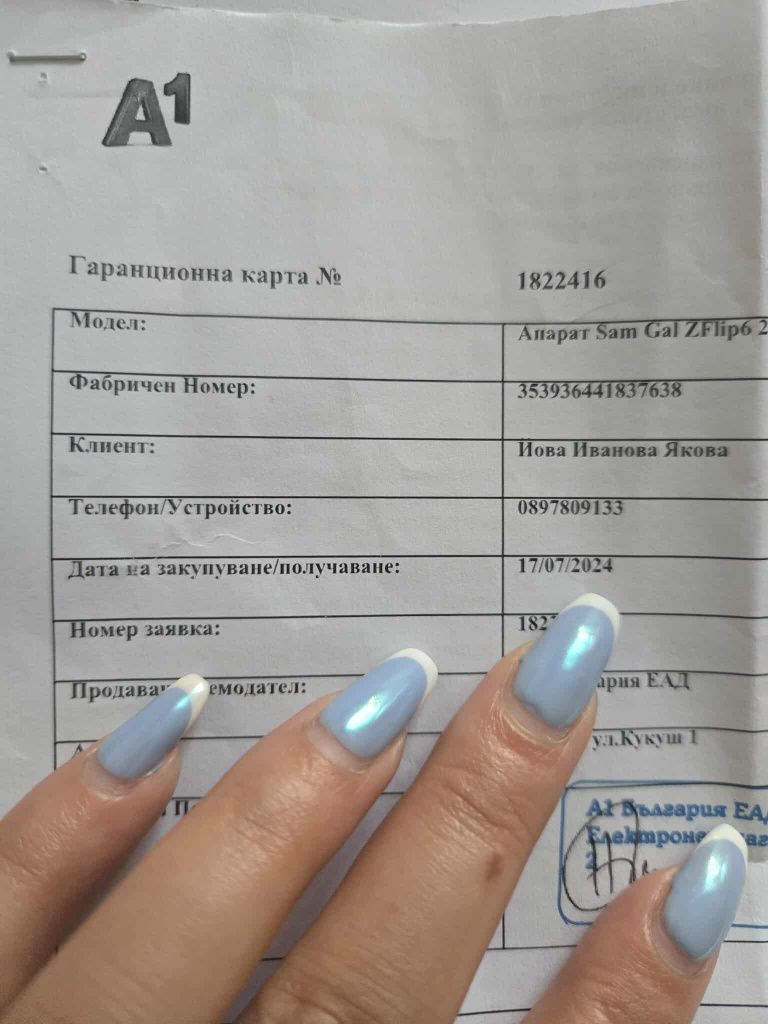 A1
Гаранционна карта № 1822416
Модел: Апарат Sam Gal ZFlip6 2
Фабричен Номер: 353936441837638
Клиент: Йова Иванова Якова
Телефон/Устройство: 0897809133
Дата на закупуване/получаване: 17/07/2024
Номер заявка: 182
ЕАД
ул.Кукуш 1
А1 България ЕАД
2